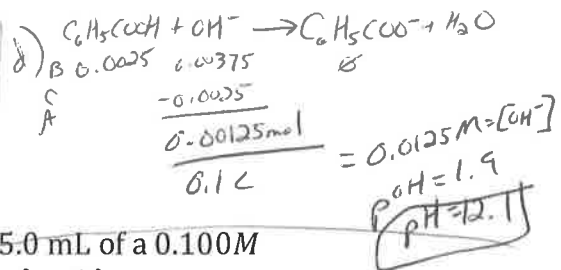 d) C6H5COOH + OH⁻ → C6H5COO⁻ + H2O
B 0.0025 0.00375 ø
C -0.0025
A 0.00125mol
0.1 L
= 0.0125 M=[OH⁻]
pOH=1.9
pH=12.1
5.0 mL of a 0.100M